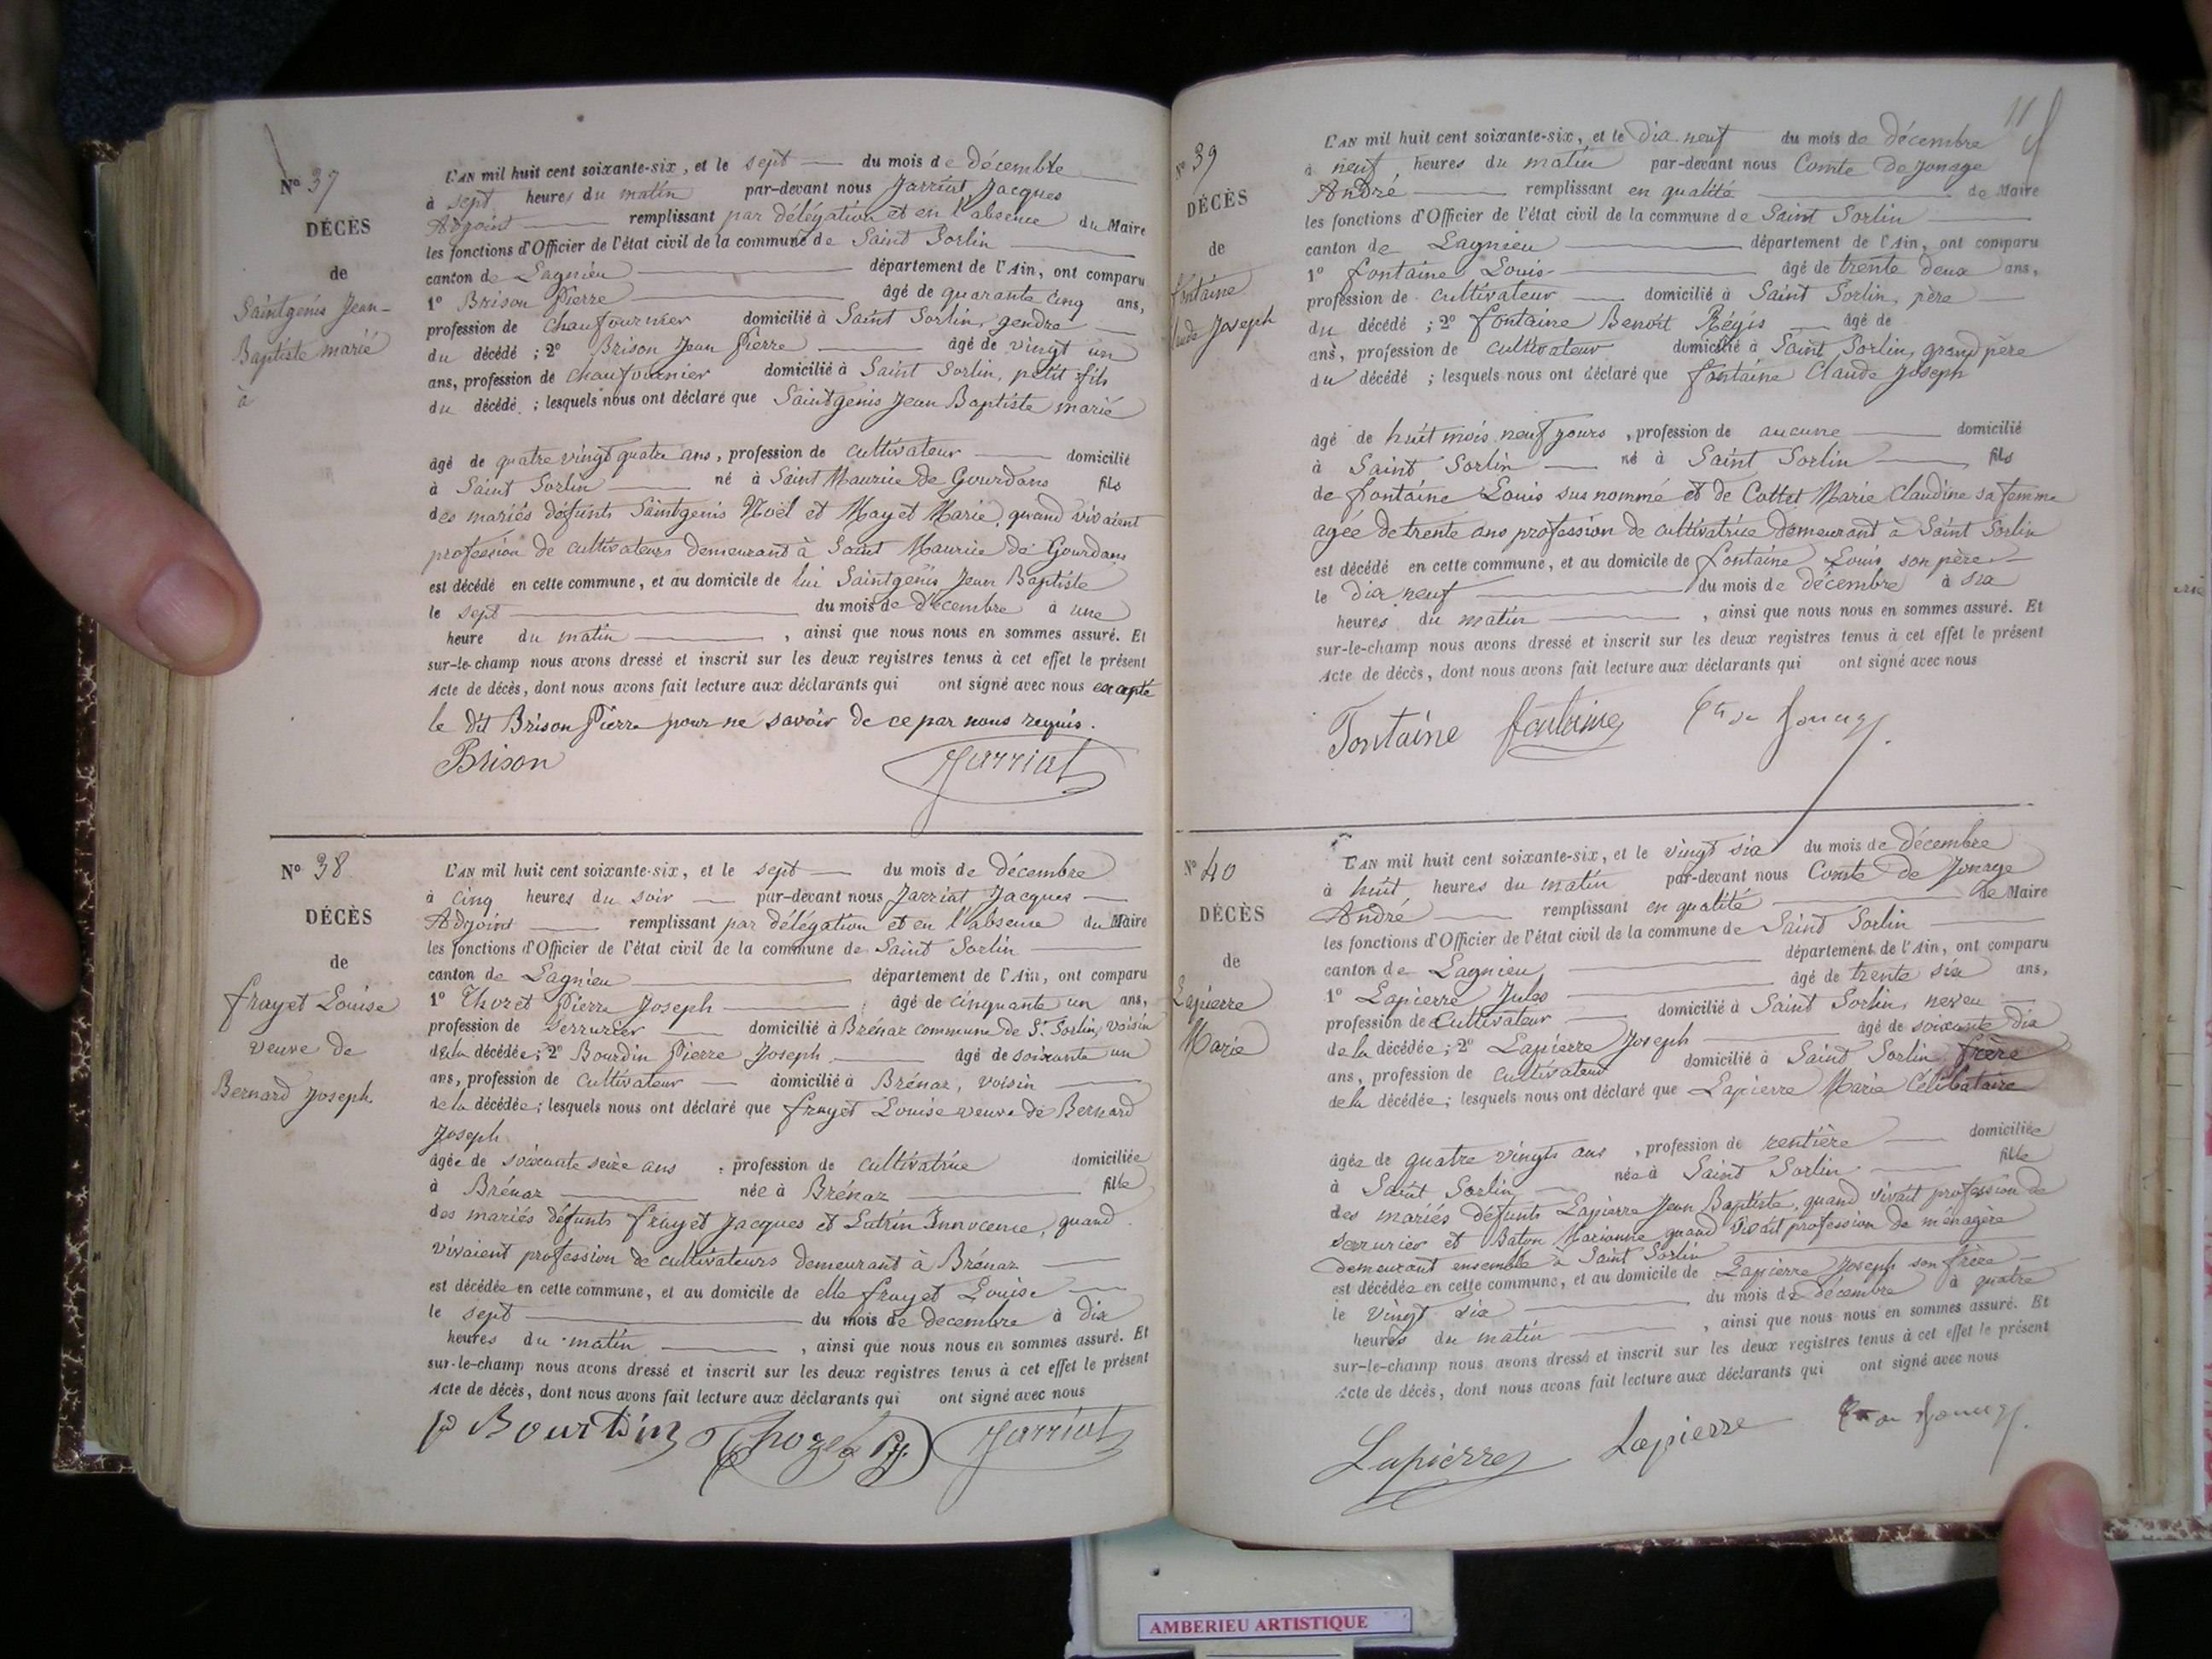 N° 37
DÉCÈS
de
Saintgenis Jean-
Baptiste marié
à
L'AN mil huit cent soixante-six, et le sept du mois de décembre
à sept heures du matin par-devant nous Jarriat Jacques
Adjoint remplissant par délégation et en l'absence du Maire
les fonctions d'Officier de l'état civil de la commune de Saint Sorlin
canton de Lagnieu département de l'Ain, ont comparu
1° Brison Pierre âgé de quarante cinq ans,
profession de chaufournier domicilié à Saint Sorlin, gendre
du décédé ; 2° Brison Jean Pierre âgé de vingt un
ans, profession de chaufournier domicilié à Saint Sorlin, petit fils
du décédé ; lesquels nous ont déclaré que Saintgenis Jean Baptiste marié
âgé de quatre vingt quatre ans, profession de cultivateur domicilié
à Saint Sorlin né à Saint Maurice de Gourdans fils
des mariés défunts Saintgenis Noël et Mayet Marie, quand vivaient
profession de cultivateurs demeurant à Saint Maurice de Gourdans
est décédé en cette commune, et au domicile de lui Saintgenis Jean Baptiste
le sept du mois de décembre à une
heure du matin , ainsi que nous nous en sommes assuré. Et
sur-le-champ nous avons dressé et inscrit sur les deux registres tenus à cet effet le présent
Acte de décès, dont nous avons fait lecture aux déclarants qui ont signé avec nous excepté
le dit Brison Pierre pour ne savoir de ce par nous requis.
Brison Jarriat
N° 38
DÉCÈS
de
frayet Louise
veuve de
Bernard Joseph
L'AN mil huit cent soixante-six, et le sept du mois de décembre
à cinq heures du soir par-devant nous Jarriat Jacques
Adjoint remplissant par délégation et en l'absence du Maire
les fonctions d'Officier de l'état civil de la commune de Saint Sorlin
canton de Lagnieu département de l'Ain, ont comparu
1° Thozet Pierre Joseph âgé de cinquante un ans,
profession de serrurier domicilié à Brénaz commune de St Sorlin, voisin
de la décédée ; 2° Bourdin Pierre Joseph âgé de soixante un
ans, profession de cultivateur domicilié à Brénaz, voisin
de la décédée ; lesquels nous ont déclaré que frayet Louise veuve de Bernard
Joseph
âgée de soixante seize ans , profession de cultivatrice domiciliée
à Brénaz née à Brénaz fille
des mariés défunts frayet Jacques et Lutrin Innocence, quand
vivaient profession de cultivateurs demeurant à Brénaz
est décédée en cette commune, et au domicile de elle frayet Louise
le sept du mois de decembre à dix
heures du matin , ainsi que nous nous en sommes assuré. Et
sur-le-champ nous avons dressé et inscrit sur les deux registres tenus à cet effet le présent
Acte de décès, dont nous avons fait lecture aux déclarants qui ont signé avec nous
Bourdin Thozet PJ Jarriat
11
N° 39
DÉCÈS
de
fontaine
Claude Joseph
L'AN mil huit cent soixante-six, et le dix neuf du mois de décembre
à neuf heures du matin par-devant nous Comte de Jonage
André remplissant en qualité de Maire
les fonctions d'Officier de l'état civil de la commune de Saint Sorlin
canton de Lagnieu département de l'Ain, ont comparu
1° fontaine Louis âgé de trente deux ans,
profession de cultivateur domicilié à Saint Sorlin, père
du décédé ; 2° fontaine Benoît Régis âgé de
ans, profession de cultivateur domicilié à Saint Sorlin, grand père
du décédé ; lesquels nous ont déclaré que fontaine Claude Joseph
âgé de huit mois neuf jours , profession de aucune domicilié
à Saint Sorlin né à Saint Sorlin fils
de fontaine Louis sus nommé et de Cottet Marie Claudine sa femme
agée de trente ans profession de cultivatrice demeurant à Saint Sorlin
est décédé en cette commune, et au domicile de fontaine Louis son père
le dix neuf du mois de décembre à six
heures du matin , ainsi que nous nous en sommes assuré. Et
sur-le-champ nous avons dressé et inscrit sur les deux registres tenus à cet effet le présent
Acte de décès, dont nous avons fait lecture aux déclarants qui ont signé avec nous
Fontaine fontaine Cte de Jonage
N° 40
DÉCÈS
de
Lapierre
Marie
L'AN mil huit cent soixante-six, et le vingt six du mois de décembre
à huit heures du matin par-devant nous Comte de Jonage
André remplissant en qualité de Maire
les fonctions d'Officier de l'état civil de la commune de Saint Sorlin
canton de Lagnieu département de l'Ain, ont comparu
1° Lapierre Jules âgé de trente six ans,
profession de Cultivateur domicilié à Saint Sorlin, neveu
de la décédée ; 2° Lapierre Joseph âgé de soixante dix
ans, profession de cultivateur domicilié à Saint Sorlin, frère
de la décédée ; lesquels nous ont déclaré que Lapierre Marie Célibataire
âgée de quatre vingts ans , profession de rentière domiciliée
à Saint Sorlin née à Saint Sorlin fille
des mariés défunts Lapierre Jean Baptiste, quand vivait profession de
serrurier et Baton Marianne quand vivait profession de ménagère
demeurant ensemble à Saint Sorlin
est décédée en cette commune, et au domicile de Lapierre Joseph son frère
le vingt six du mois de décembre à quatre
heures du matin , ainsi que nous nous en sommes assuré. Et
sur-le-champ nous avons dressé et inscrit sur les deux registres tenus à cet effet le présent
Acte de décès, dont nous avons fait lecture aux déclarants qui ont signé avec nous
Lapierre Lapierre Cte de Jonage
AMBERIEU ARTISTIQUE